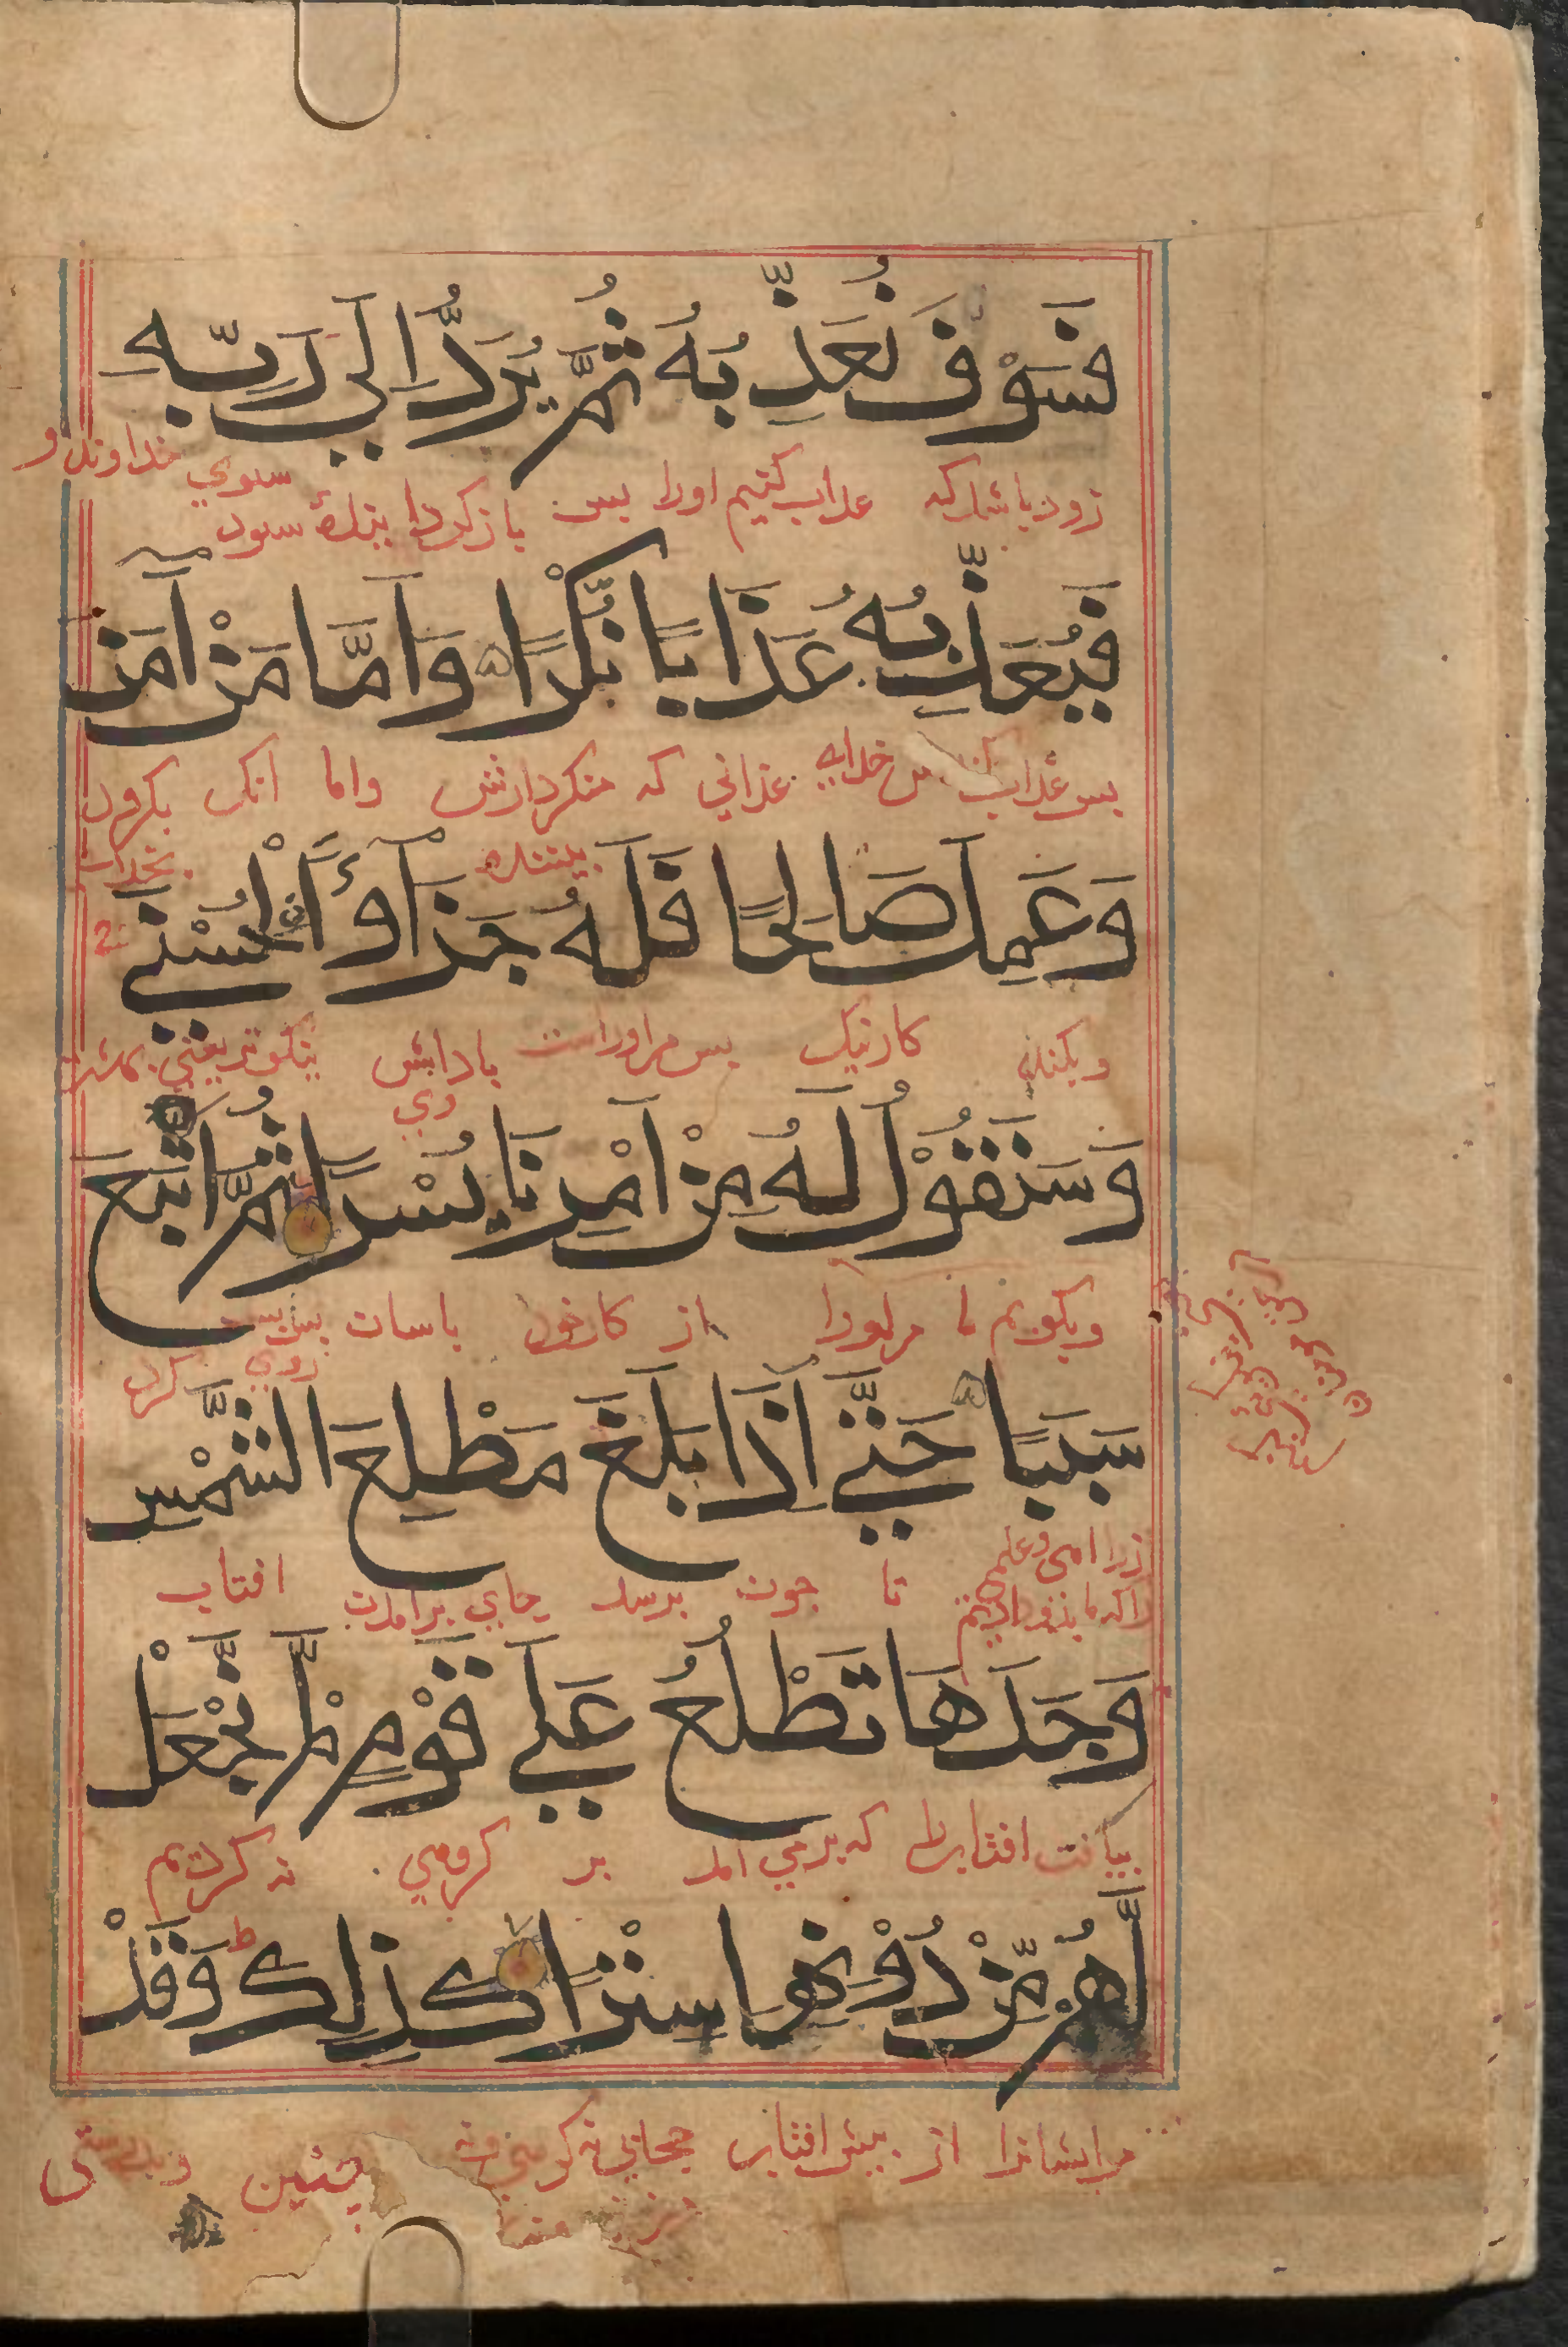 فَسَوْفَ نُعَذِّبُهُ ثُمَّ يُرَدُّ اِلَى رَبِّهِ
زود باشد كه عذاب كنيم اورا پس باز كردا بنده سود سوي خداوند او
فَيُعَذِّبُهُ عَذَابًا نُّكْرًا وَاَمَّا مَنْ اٰمَنَ
پس عذاب خداي عذابي كه منكر دارش واما انك بكرود
بيننده بخداي
وَعَمِلَ صَالِحًا فَلَهُ جَزَآؤًا ۨالْحُسْنٰى
وبكند كار نيك پس مر اوراست پاداش نيكوتر يعني بهشت
وي
وَسَنَقُوْلُ لَهُ مِنْ اَمْرِنَا يُسْرًا ثُمَّ اَتْبَعَ
وبكويم ما مر اورا از كار خود باسات پس
روي كرد
سَبَبًا حَتّٰى اِذَا بَلَغَ مَطْلِعَ الشَّمْسِ
تا جون برسد جاي برامدن افتاب
وَجَدَهَا تَطْلُعُ عَلٰى قَوْمٍ لَّمْ نَجْعَلْ
بيافت افتابرا كه برمي امد بر كروهي نه كرديم
لَّهُمْ مِّنْ دُوْنِهَا سِتْرًا كَذٰلِكَ وَقَدْ
مر ايشانرا از پيش افتاب حجابي نه كوه ونه
چنين وبدرستي